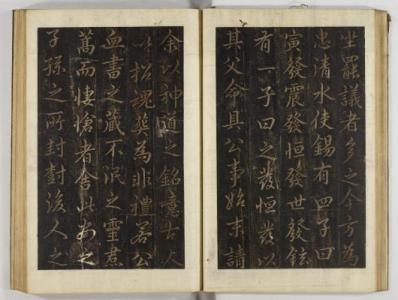 坐罷議者多之今方為
忠清水使錫有四子曰
寅發震發恒發世發鉉
有一子曰之發恒發以
其父命具公事始末請
余以神道之銘噫古人
以招魂葬為非禮若公
血書之藏不泯之靈焄
蒿而悽愴者舍此安之
子孫之所封後人之